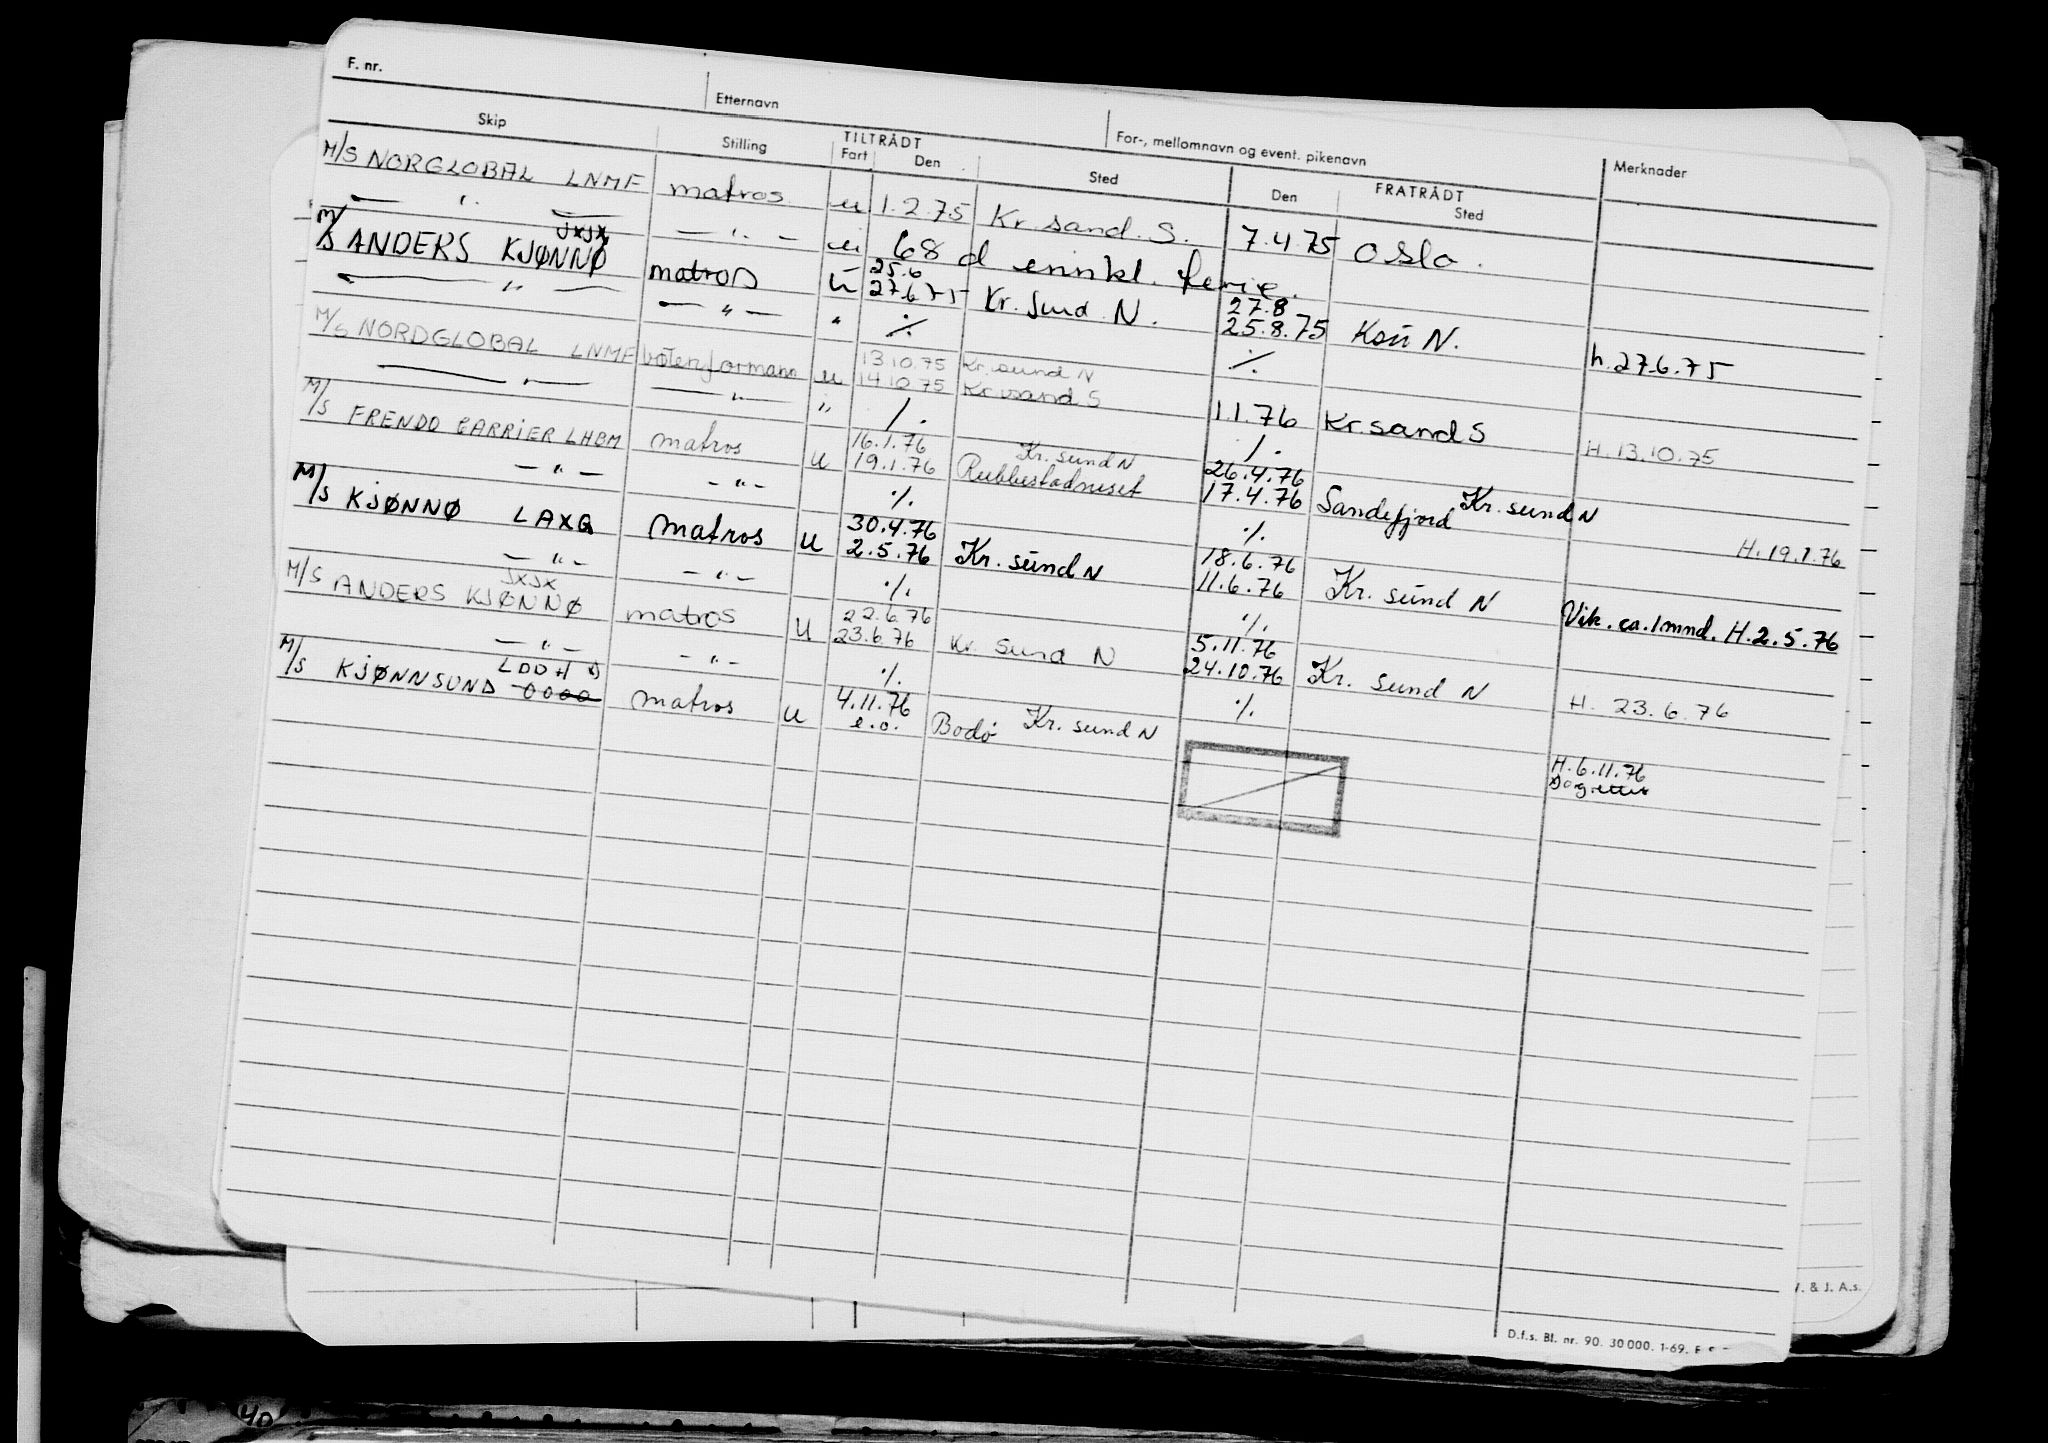 F. nr.
Etternavn
For-, mellomnavn og event. pikenavn
Skip
Stilling
TILTRÅDT
Fart
Den
Sted
FRATRÅDT
Den
Sted
Merknader
M/S NORGLOBAL LNMF matros u 1.2.75 Kr. sand. S. 7.4.75 Oslo.
— " — — " — u 68 d erinkl. ferie.
M/S ANDERS KJØNNØ JXJX matros u 25.6 27.6.75 Kr. Sund. N. 27.8 25.8.75 Ksu N. h.27.6.75
— " — — " — " ./. ./.
M/S NORDGLOBAL LNMF båtsformann u 13.10.75 14.10.75 Kr. sund N Kr.sand S 1.1.76 Kr.sand S H. 13.10.75
— " — — " — " /. /.
M/S FRENDO CARRIER LHBM matros u 16.1.76 19.1.76 Kr. sund N Rubbestadneset 26.4.76 17.4.76 Sandefjord Kr. sund N H. 19.1.76
— " — — " — ./. ./.
M/S KJØNNØ LAXQ matros u 30.4.76 2.5.76 Kr. sund N 18.6.76 11.6.76 Kr. sund N Vik. ca. 1 mnd. H. 2.5.76
— " — — " — ./. ./.
M/S ANDERS KJØNNØ JXJX matros u 22.6.76 23.6.76 Kr Sund N 5.11.76 24.10.76 Kr. Sund N H. 23.6.76
— " — — " — ./. ./.
M/S KJØNNSUND LDDH matros u 4.11.76 e.o. Bodø Kr. sund N H. 6.11.76
D.f.s. Bl. nr. 90. 30 000. 1-69.
& J. A.s.
40